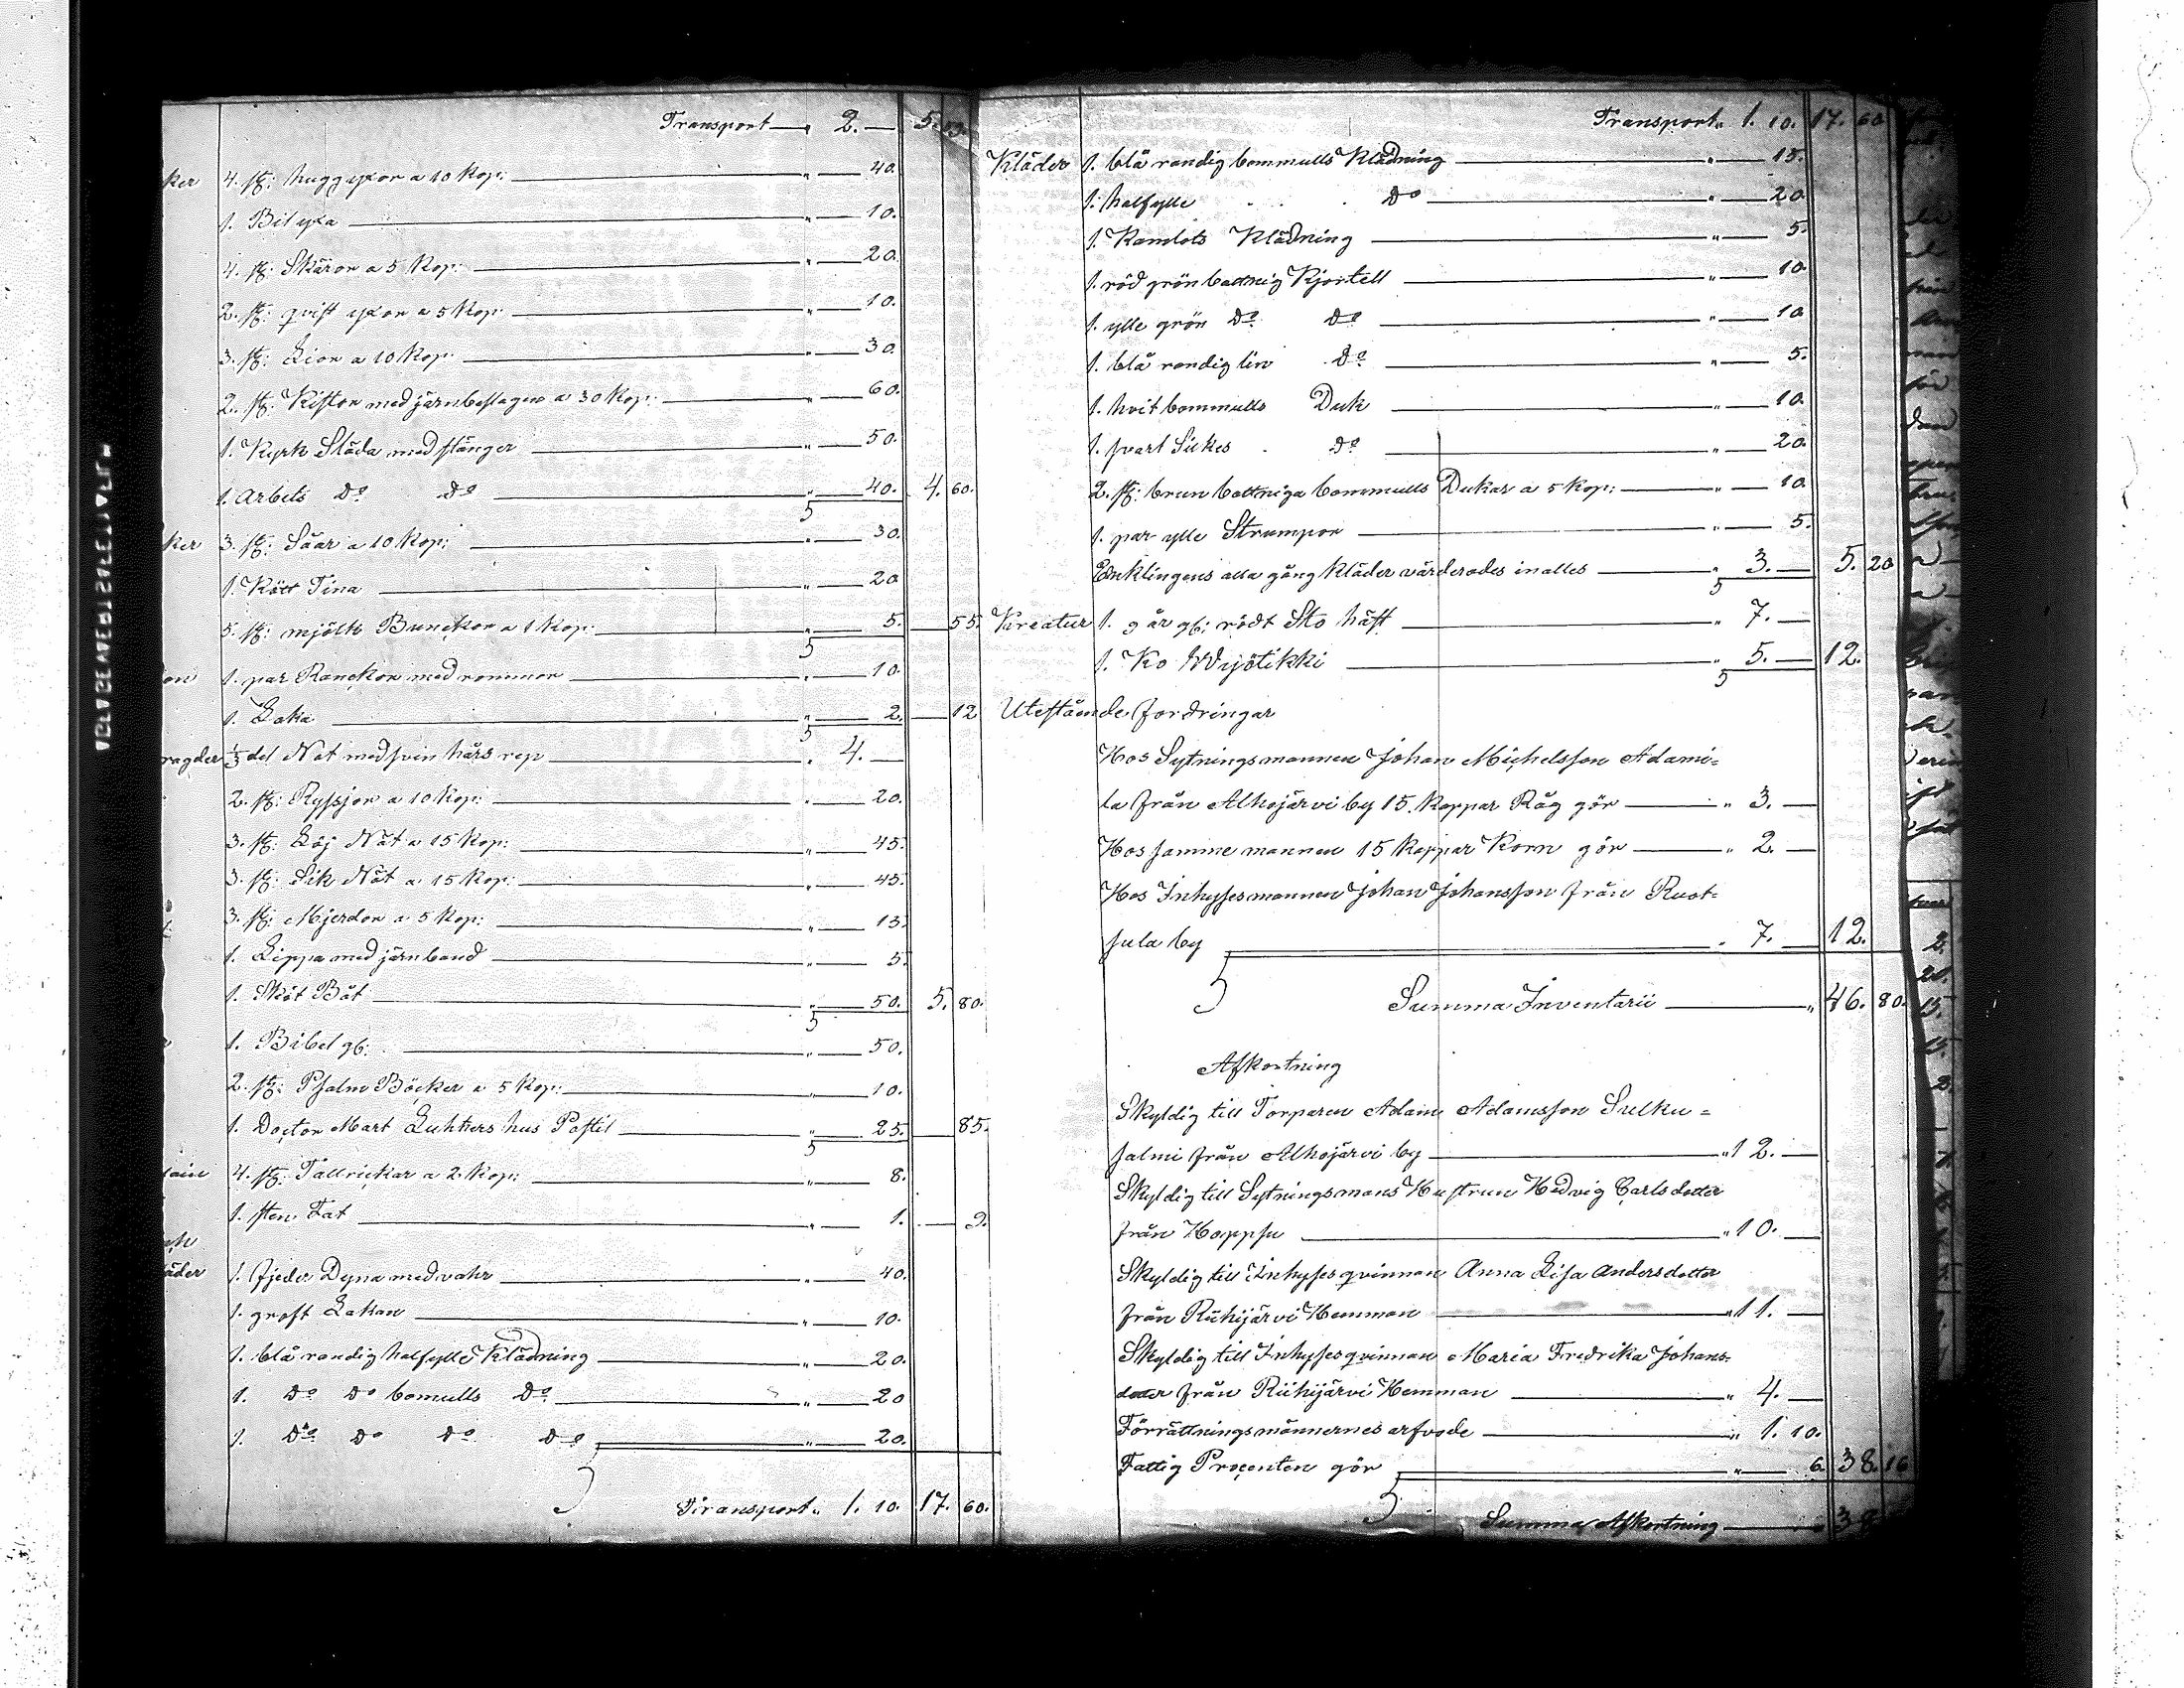 Transport — " 2. — 5. 
ker 4. st: huggyxor a 10 Kop: — " — 40.
1. Bilyxa — " — 10.
4. st: Skäror a 5 Kop: — " — 20.
2. st: qvist yxor a 5 Kop: — " — 10.
3. st: Lior a 10 Kop: — " — 30.
2. st: Kistor med järnbeslagen a 30 Kop: — " — 60.
1. Kyrk Släda med stänger — " — 50.
1. Arbets do do — " — 40. 4. 60.
ker 3. st: Såar a 10 Kop: — " — 30.
1. Kött Tina — " — 20
5. st: mjölk Bunckor a 1 Kop: — " — 5. — 55.
on 1. par Ranckor med remmor — " — 10.
1. Laka — " — 2. — 12
ragder 1/3 del Not med svin hårs rep — " 4. —
2. st: Ryssjor a 10 Kop: — " — 20.
3. st: Löj Nät a 15 Kop: — " — 45.
3. st: Sik Nät a 15 Kop: — " — 45.
3. st: Mjerdor a 5 Kop: — " — 15.
1. Lippa med järnband — " — 5.
1. Sköt Båt — " — 50. 5. 80.
1. Bibel gb: — " — 50.
2. st: Psalm Böcker a 5 Kop: — " — 10.
1. Doctor Mart Luhters hus Postil — " — 25. — 85.
lain 4. st: Tallrickar a 2 Kop: — " — 8.
1. sten Fat — " — 1. — 9.
äder 1. fjeder Dyna med vahr — " — 40.
1. groft Lakan — " — 10.
1. blå randig halfylle Klädning — " — 20.
1. do do bomulls do — " — 20
1. do do do do — " — 20.
Transport " 1. 10. 17. 60.
Transport " 1. 10. 17. 60
Kläder 1. blå randig bommulls Klädning — " — 15.
1. halfylle do — " — 20.
1. Kamlots Klädning — " — 5.
1. röd grönbottnig Kjortell — " — 10.
1. ylle grön do do — " — 10.
1. blå randig lin do — " — 5.
1. hvit bommulls Duk — " — 10.
1. svart Sickes do — " — 20.
2. st: brun bottniga bommulls Dukar a 5 Kop: — " — 10.
1. par ylle Strumpor — " — 5.
Enklingens alla gång kläder värderades inalles — " 3. — 5. 20
Kreatur 1. 9 år gb: rödt Sto häst — " 7. —
1. Ko Wijötikki — " 5. — 12.
Utestående fordringar
Hos Sytningsmannen Johan Michelsson Adami=
la från Alhojärvi by 15. Kappar Råg gör — " 3. —
Hos samme mannen 15 Kappar Korn gör — " 2. —
Hos Inhysesmannen Johan Johansson från Ruot=
sula by — " 7. — 12.
Summa Inventarii — " 46. 80.
Afkortning
Skyldig till Torparen Adam Adamsson Sulku=
salmi från Alhojärvi by — " 12. —
Skyldig till Sytningsmans Hustrun Hedvig Carlsdotter
från Hoppsu — " 10. —
Skyldig till Inhysesqvinnan Anna Lisa Andersdotter
från Riihijärvi Hemman — " 11. —
Skyldig till Inhysesqvinnan Maria Fredrika Johans=
dotter från Riihijärvi Hemman — " 4. —
Förrättningsmännernes arfvode — " 1. 10.
Fattig Procenten gör — " — 6. 38. 16
Summa Afkortning — " 38